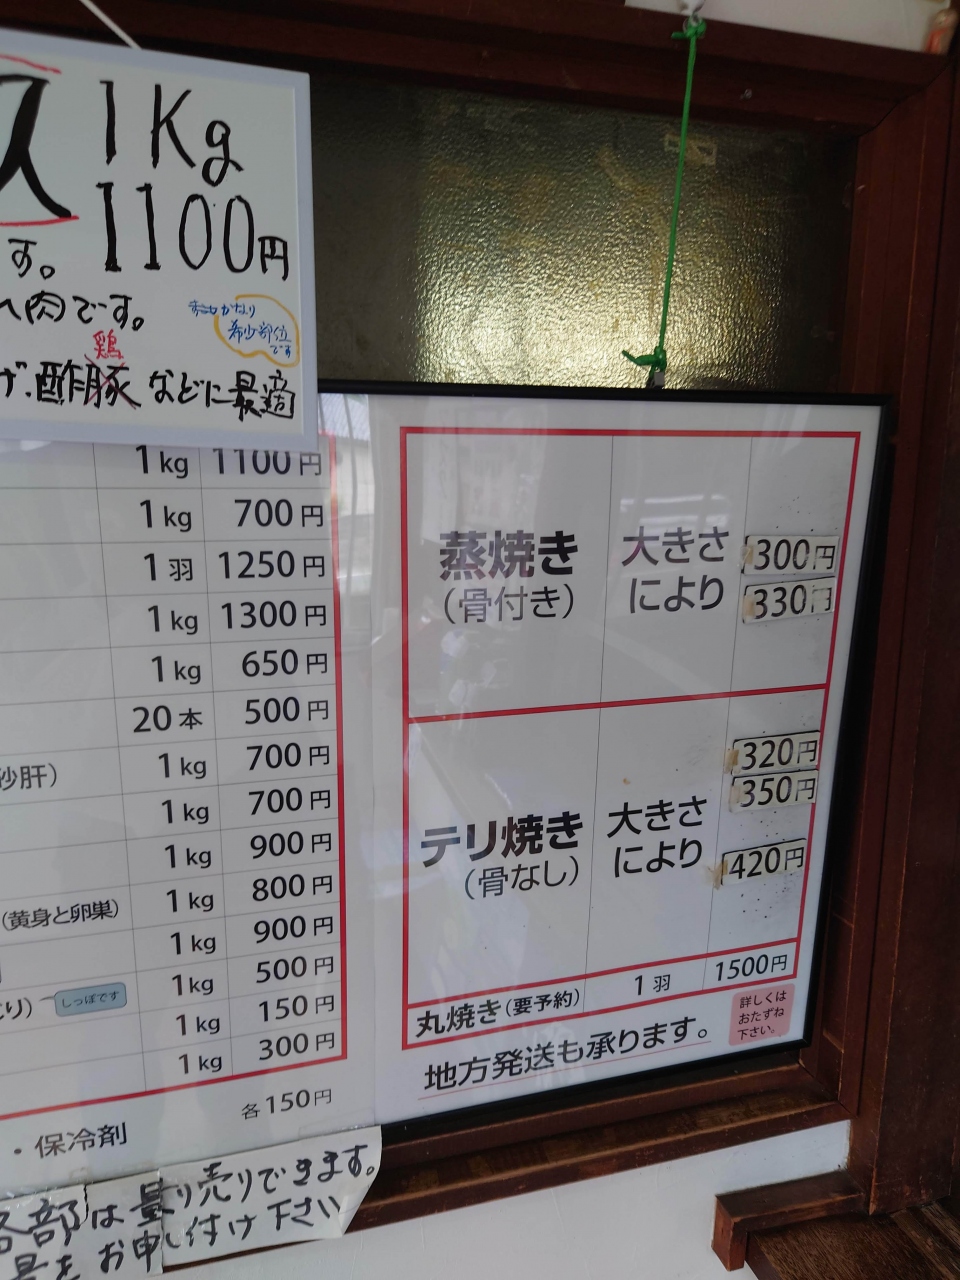 ス 1Kg
1100円
す。
肉です。
まものかなり
希少部位
です
鶏
げ.酢豚 などに最適
1kg 1100円
1kg 700円
1羽 1250円
1kg 1300円
1kg 650円
20本 500円
砂肝) 1kg 700円
1kg 700円
1kg 900円
(黄身と卵巣) 1kg 800円
1kg 900円
り) しっぽです 1kg 500円
1kg 150円
1kg 300円
各150円
・保冷剤
各部は量り売りできます。
量をお申し付け下さい
蒸焼き
(骨付き)
大きさ
により
300円
330円
テリ焼き
(骨なし)
大きさ
により
320円
350円
420円
丸焼き(要予約) 1羽 1500円
地方発送も承ります。
詳しくは
おたずね
下さい。